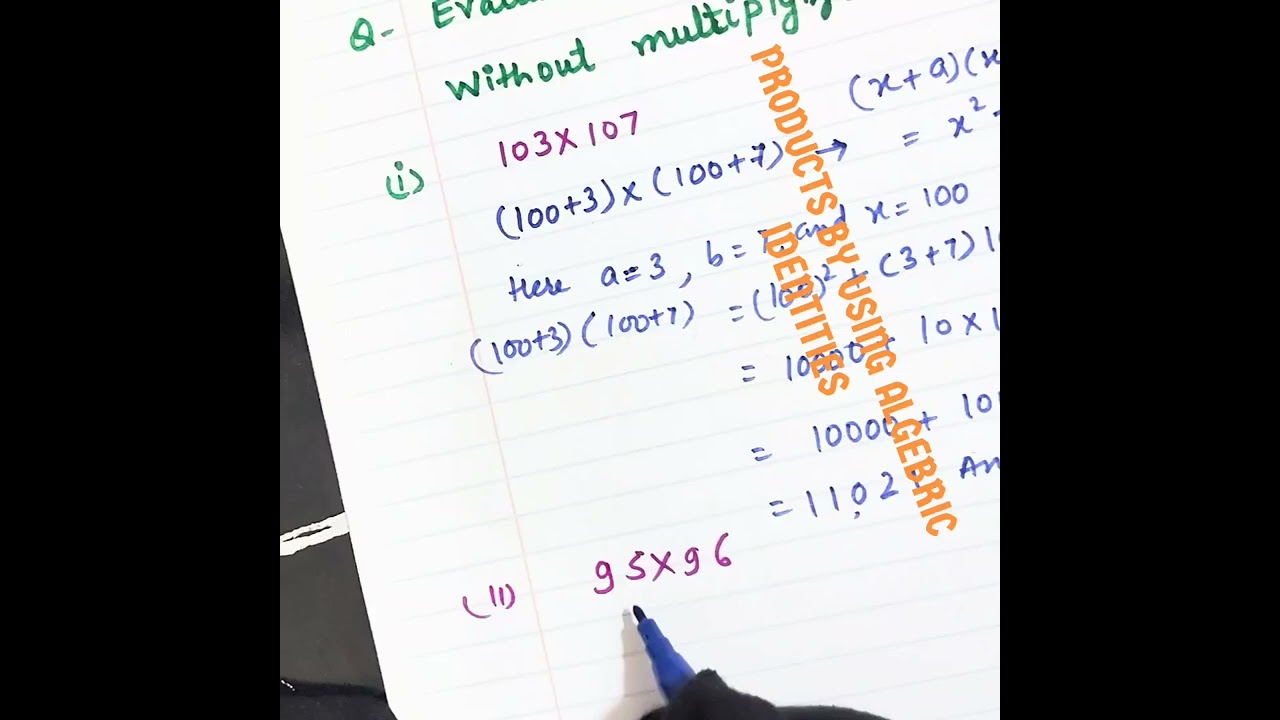 Q- Evalu
Without multiplyi
(i) 103 X 107
(100+3) x (100+7) → (x+a)(x
= x² -
Here a=3, b=7, and x=100
(100+3) (100+7) = (100)² + (3+7) 10
= 10000 + 10 X 1
= 10000 + 10
= 1102 An
(II) 95 X 96
PRODUCTS BY USING ALGEBRIC
IDENTITIES